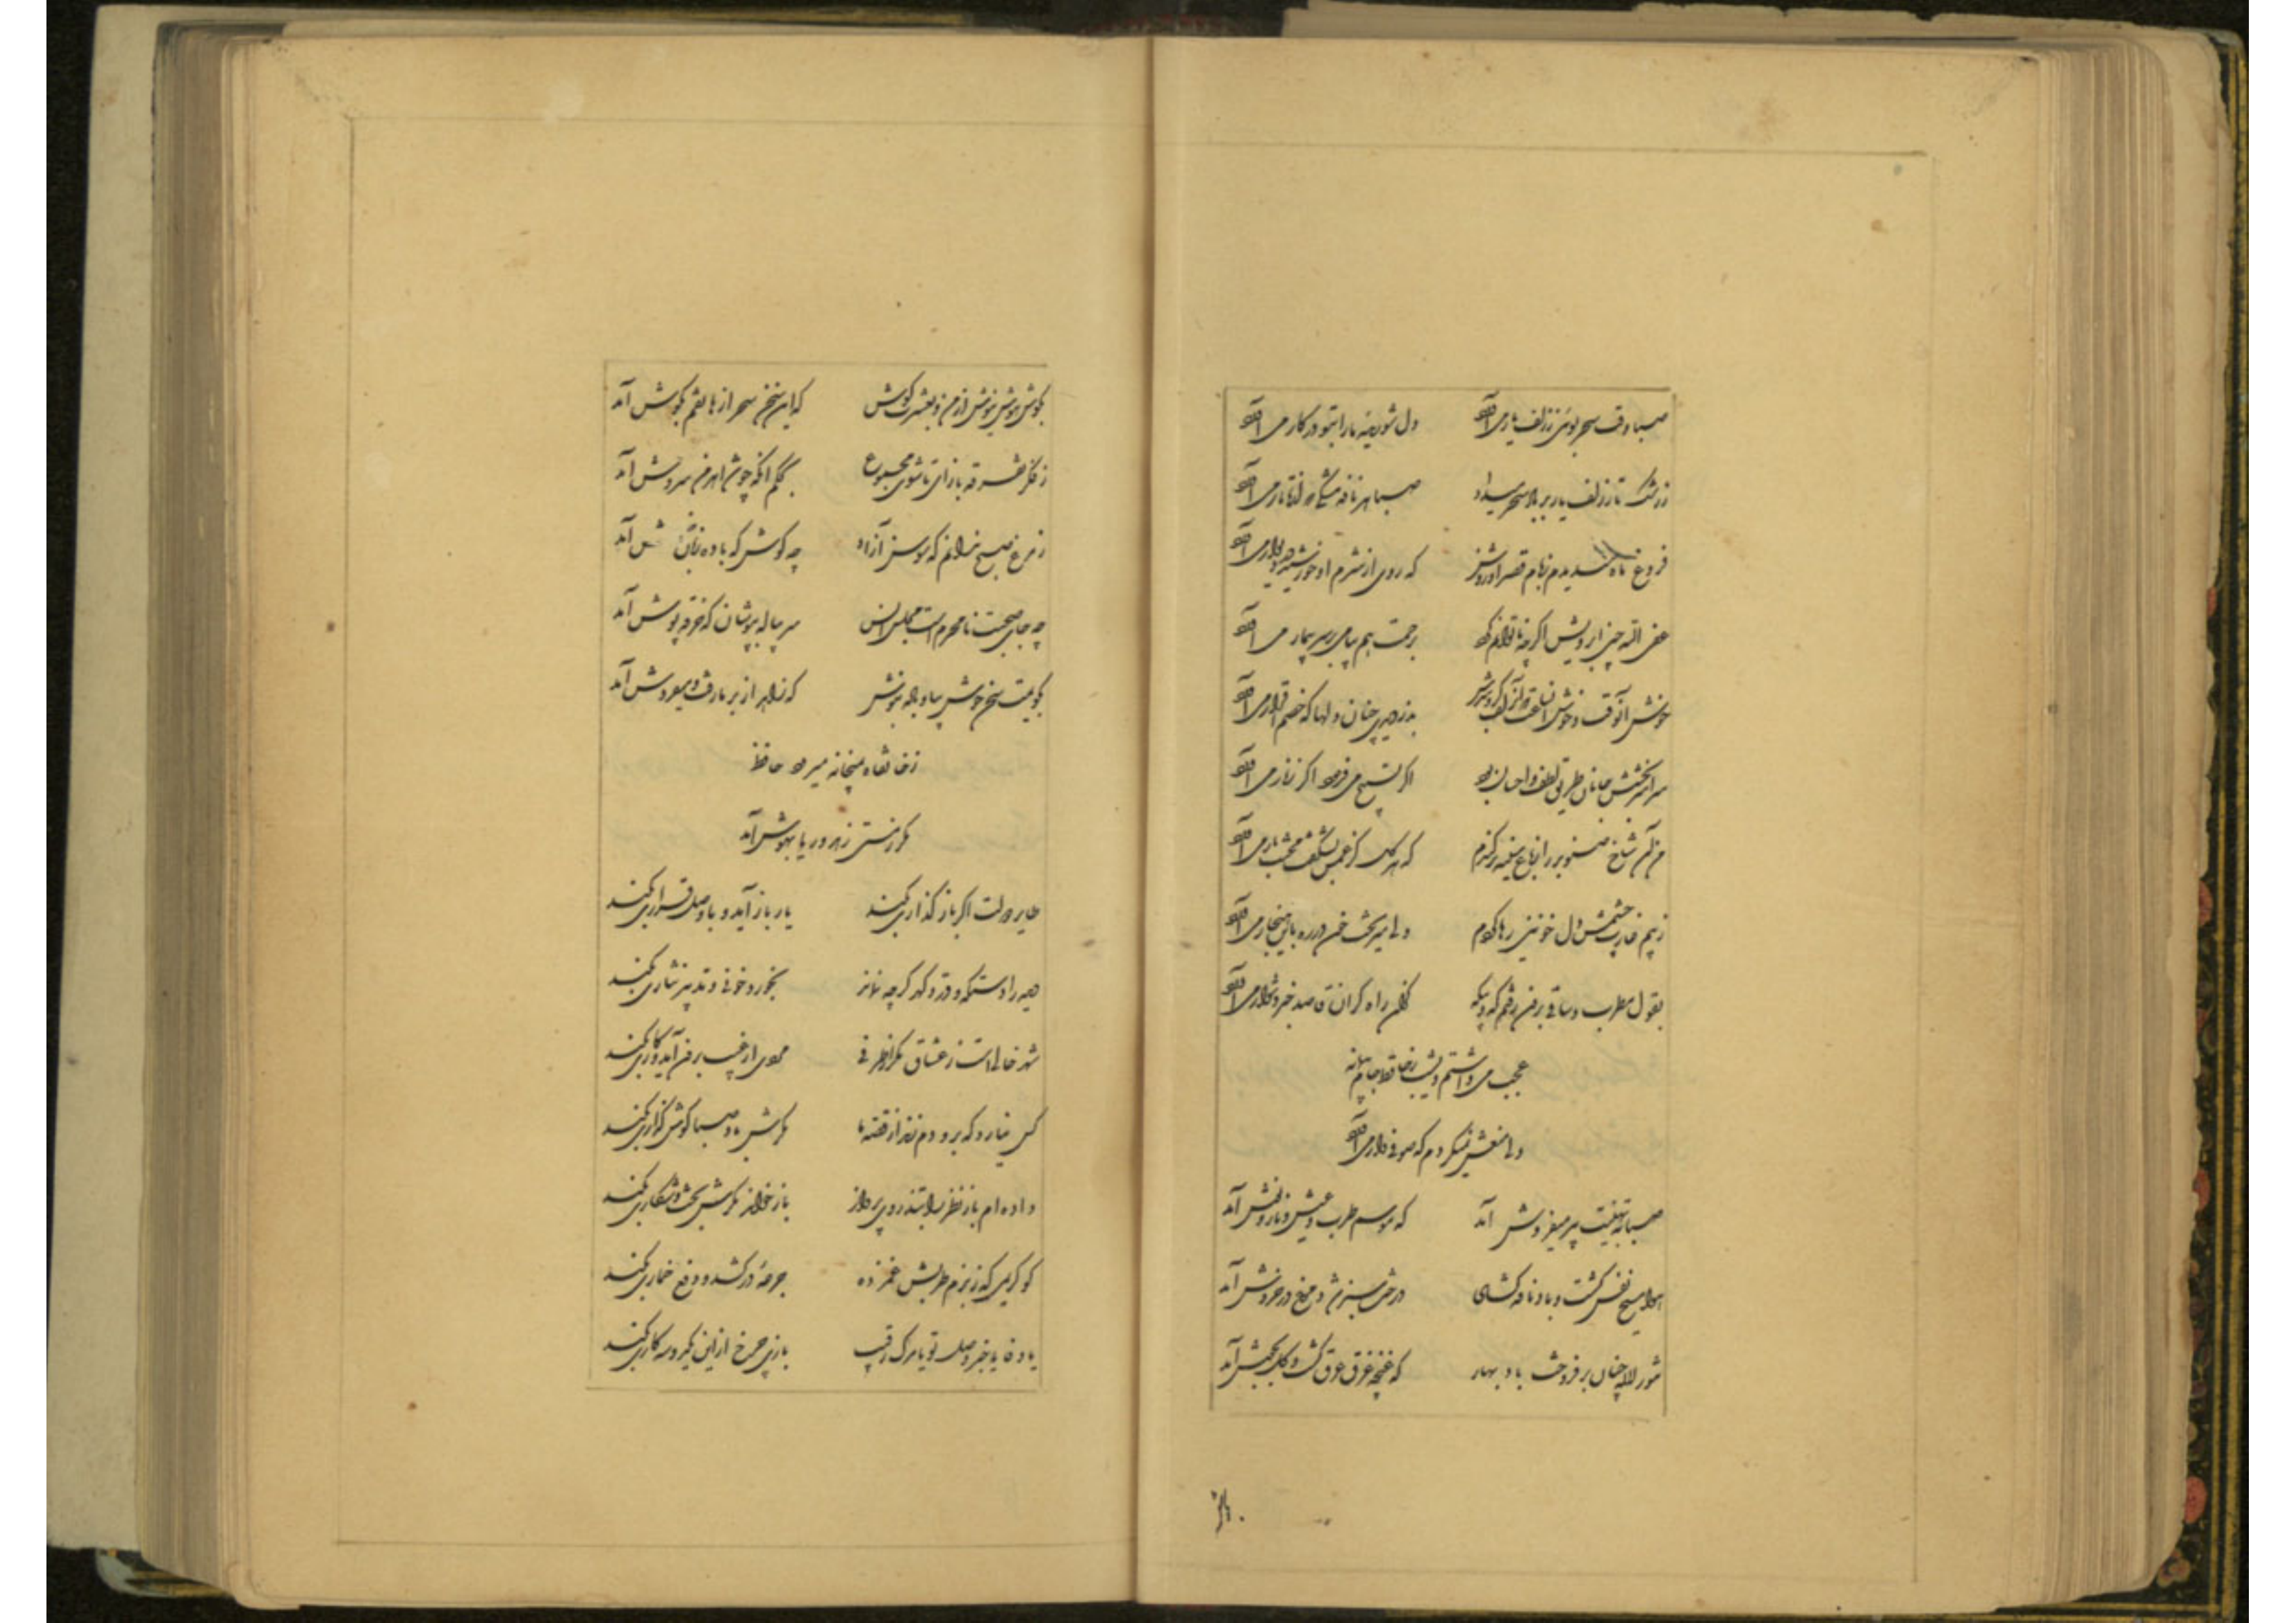 صبا وقت سحر بوئی ز زلف یار می آورد دل شوریده ما را بتو در کار می آورد
ز رشک تار زلف یار بر باد سحر میداد صبا هر نافه مشکی که از تاتار می آورد
فروغ ماه میدیدم ز بام قصر او روشن که روی از شرم او خورشید بر دیوار می آورد
عفی الله چین ابرویش اگر چه ناتوانم کرد برحمت هم پیامی بر سر بیمار می آورد
خوش آنوقت و خوش آنساعت که آن زلف گره گیرش بدزدیدی چنان دلها که خصم اقرار می آورد
سراسر بخشش جانان طریق لطف و احسان بود اگر تسبیح می فرمود اگر زنار می آورد
من آن شاخ صنوبر را ز باغ سینه برکندم که هر گل کز غمش بشکفت محنت بار می آورد
ز بیم غارت چشمش دل خونین رها کردم ولی میریخت خون در ره باین هنجار می آورد
بقول مطرب و ساقی برفتم گه و بیگه کزان راه گران قاصد خبر دشوار می آورد
عجب می داشتم دیشب ز حافظ جام و پیمانه
ولی منعش نمیکردم که صوفی وار می آورد
صبا به تهنیت پیر میفروش آمد که موسم طرب و عیش و ناز و نوش آمد
هوا مسیح نفس گشت و باد نافه گشای درخت سبز شد و مرغ در خروش آمد
تنور لاله چنان برفروخت باد بهار که غنچه غرق عرق گشت و گل بجوش آمد
بگوش هوش نیوش از من و بعشرت کوش که این سخن سحر از هاتفم بگوش آمد
ز فکر تفرقه بازآی تا شوی مجموع بحکم آنکه چو شد اهرمن سروش آمد
ز مرغ صبح ندانم که سوسن آزاد چه گوش کرد که با ده زبان خموش آمد
چه جای صحبت نامحرم است مجلس انس سر پیاله بپوشان که خرقه پوش آمد
بگویمت سخن خوش بیا و باده بنوش که زاهد از بر ما رفت و میفروش آمد
ز خانقاه بمیخانه میرود حافظ
مگر ز مستی زهد و ریا بهوش آمد
طایر دولت اگر باز گذاری بکند یار باز آید و با وصل قراری بکند
دیده را دستگه در و گهر گرچه نماند بخورد خونی و تدبیر نثاری بکند
شهر خالی است ز عشاق مگر از طرفی مردی از غیب برون آید و کاری بکند
کس نیارد که برو دم زند از قصه ما مگرش باد صبا گوش گذاری بکند
داده ام باز نظر را بتذروی پرواز بازخواند مگرش بخت و شکاری بکند
کو کریمی که ز بزم طربش غمزده جرعهٔ درکشد و دفع خماری بکند
یا وفا یا خبر وصل تو یا مرگ رقیب بازی چرخ ازین یک دو سه کاری بکند